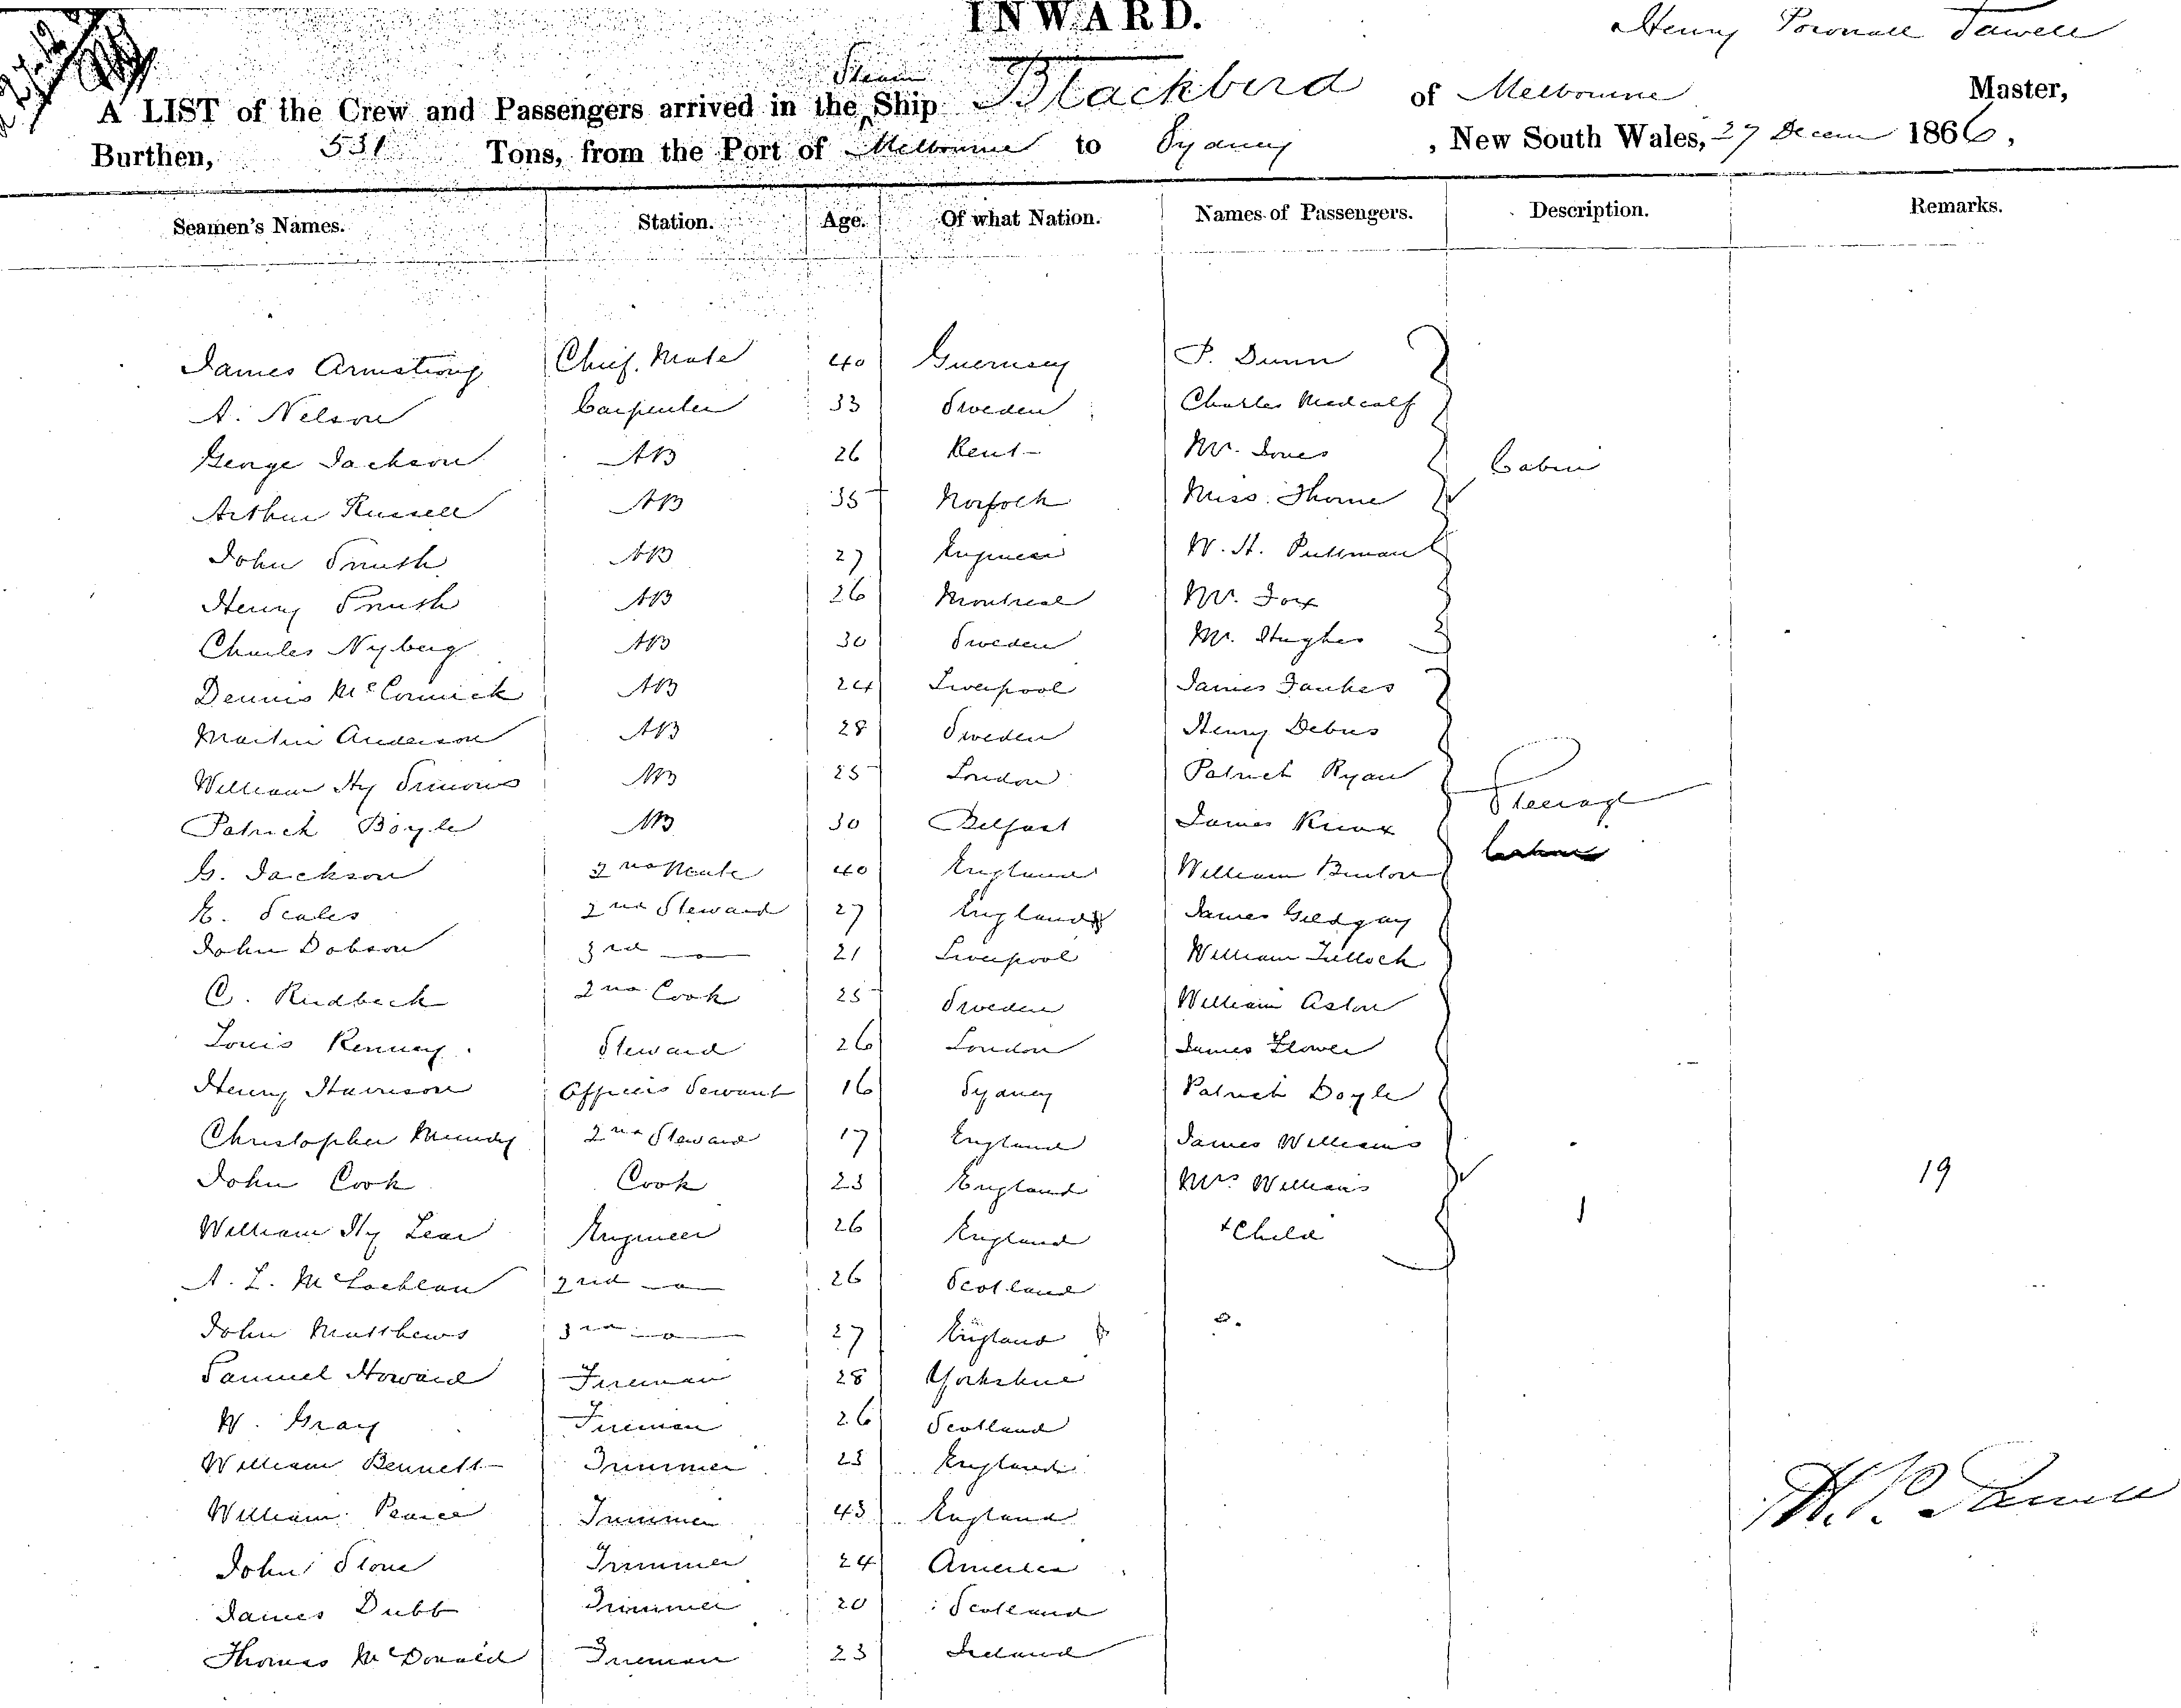 INWARD.
Henry Pownall Tawell
Steam
A LIST of the Crew and Passengers arrived in the Ship Blackbird of Melbourne Master,
Burthen, 531 Tons, from the Port of Melbourne to Sydney , New South Wales, 27 Decem 1866,
Seamen's Names. Station. Age. Of what Nation. Names of Passengers. Description. Remarks.
James Armstrong Chief Mate 40 Guernsey P. Dunn
A. Nelson Carpenter 33 Sweden Charles Medcalf
George Jackson AB 26 Kent Mr. Jones Cabin
Arthur Russell AB 35 Norfolk Miss Thorne
John Smith AB 27 W. H. Pullman
Henry Smith AB 26 Montreal Mr. Fox
Charles Nyberg AB 30 Sweden Mr. Hughes
Dennis McCormick AB 24 Liverpool James Faukes
Martin Anderson AB 28 Sweden Henry Debus
William Hy Simons AB 25 London Patrick Ryan
Patrick Boyle AB 30 Belfast James Knox Steerage
G. Jackson 2nd Mate 40 England William Burton
E. Scales 2nd Steward 27 England James Gildgay
John Dobson 3rd — 21 Liverpool William Tulloch
C. Rudbeck 2nd Cook 25 Sweden William Aston
Louis Kenney Steward 26 London James Flower
Henry Harrison Officers Servant 16 Sydney Patrick Doyle
Christopher Mundy 2nd Steward 17 England James Williams
John Cook Cook 23 England Mrs Williams 19
William Hy Lear Engineer 26 England + Child 1
A. L. McLachlan 2nd — 26 Scotland
John Matthews 3rd — 27 England
Samuel Howard Fireman 28 Yorkshire
W. Gray Fireman 26 Scotland
William Bennett Trimmer 23 England
William Pearce Trimmer 43 England
H. P. Tawell
John Stone Trimmer 24 America
James Dubb Trimmer 20 Scotland
Thomas McDonald Fireman 23 Ireland